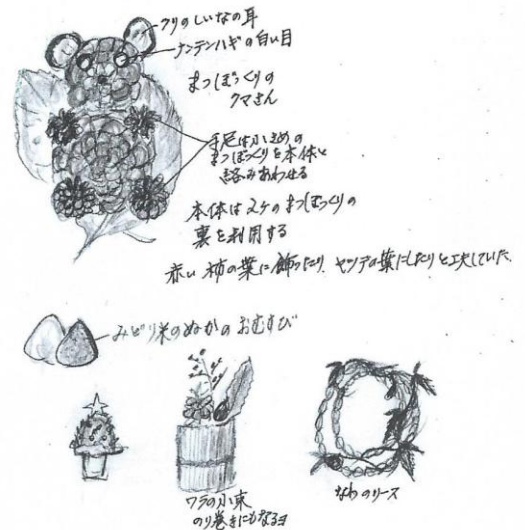 クリのしいなの耳
ナンテンハギの白い目
まつぼっくりの
クマさん
手足は小さめの
まつぼっくりを本体と
絡みあわせる
本体は2ケのまつぼっくりの
裏を利用する
赤い柿の葉に飾ったり、ヤツデの葉にしたりと工夫していた。
みどり米のぬかのおむすび
ワラの小束
のり巻きにもなるヨ
なわのリース